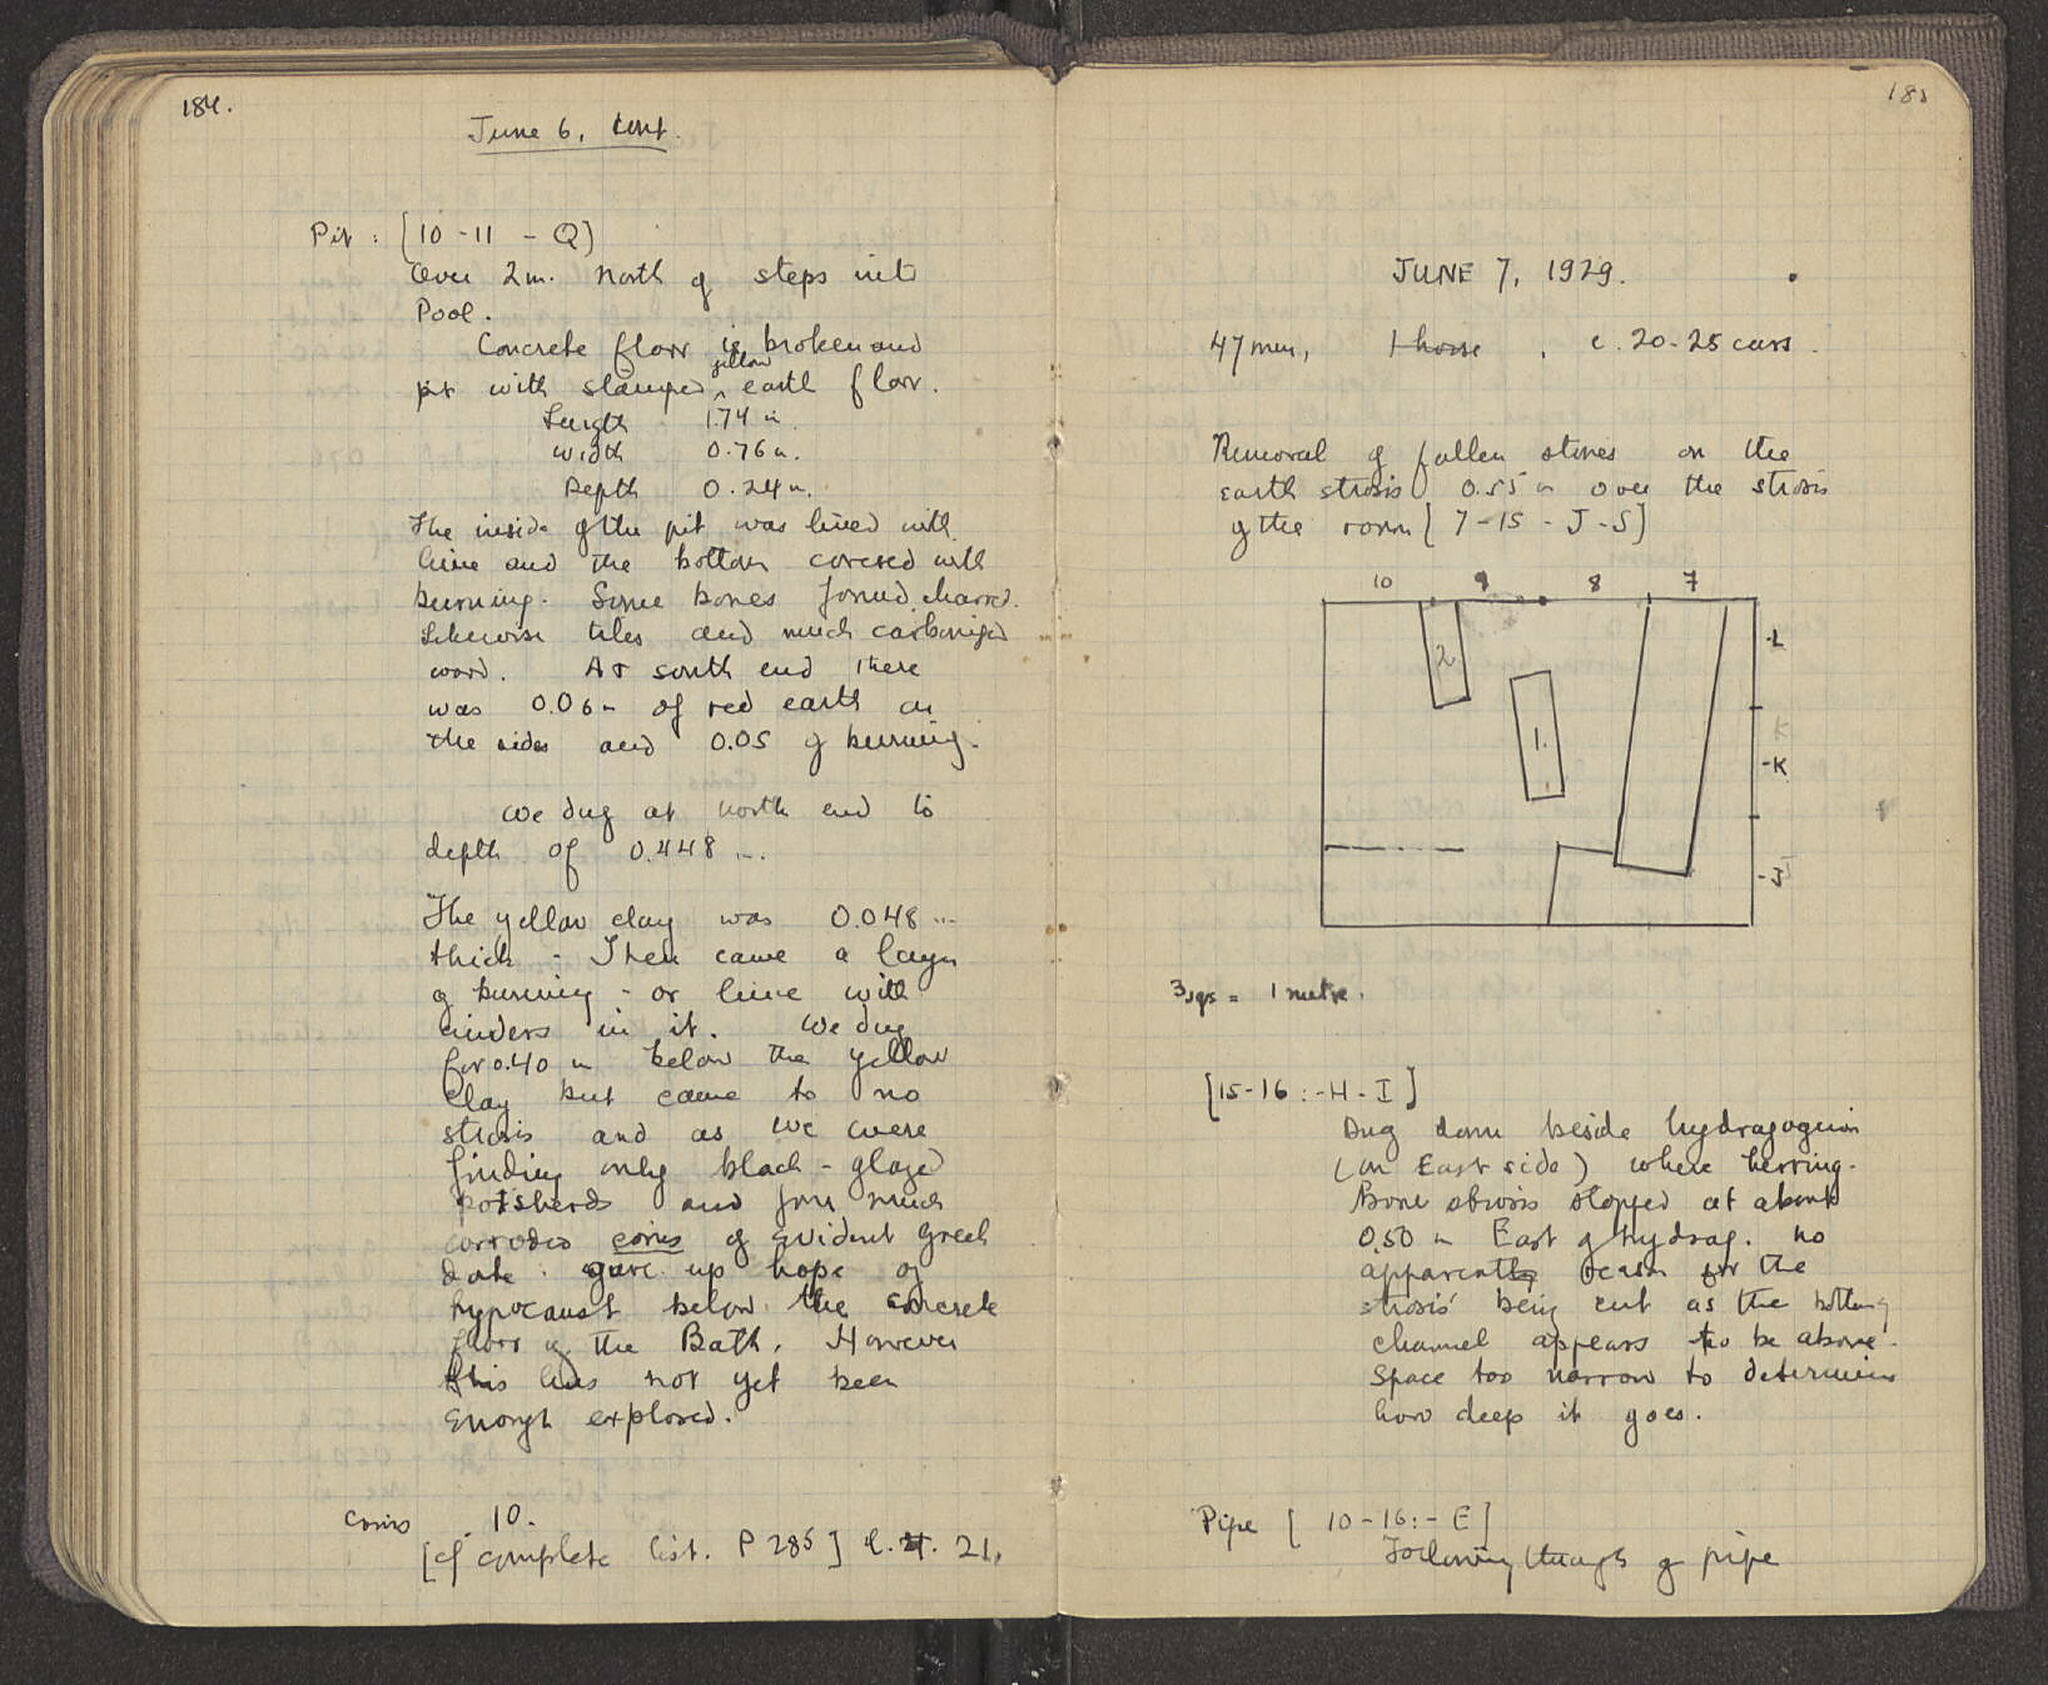 184.
June 6, cont.
Pit: [10-11-Q]
Over 2m. North of steps into
Pool.
Concrete floor is broken and
pit with stamped yellow earth floor.
Length 1.74 m.
Width 0.76 m.
Depth 0.24 m.
The inside of the pit was lined with
lime and the bottom covered with
burning. Some bones found charred.
Likewise tiles and much carbonized
wood. At south end there
was 0.06 m of red earth on
the sides and 0.05 of burning.
We dug at north end to
depth of 0.448 m.
The yellow clay was 0.048 m
thick - Then came a layer
of burning - or lime with
cinders in it. We dug
for 0.40 m below the yellow
clay but came to no
strosis and as we were
finding only black-glazed
potsherds and four much
corroded coins of evident Greek
date. gave up hope of
hypocaust below the concrete
floor of the Bath. However
this has not yet been
enough explored.
Coins 10.
[cf complete list. P 285] 21.
185
JUNE 7, 1929.
47 men, 1 horse, c. 20-25 cars.
Removal of fallen stones on the
earth strosis 0.55 m over the strosis
of the room [7-15-J-S]
10 9 8 7
2
L
1.
K
K
J
3 sqs = 1 metre.
[15-16:-H-I]
Dug down beside hydragogeion
(on East side) where herring-
bone strosis stopped at about
0.50 m East of hydrag. no
apparently reason for the
strosis being cut as the bottom of
channel appears to be above.
Space too narrow to determine
how deep it goes.
Pipe [10-16:-E]
Following through of pipe